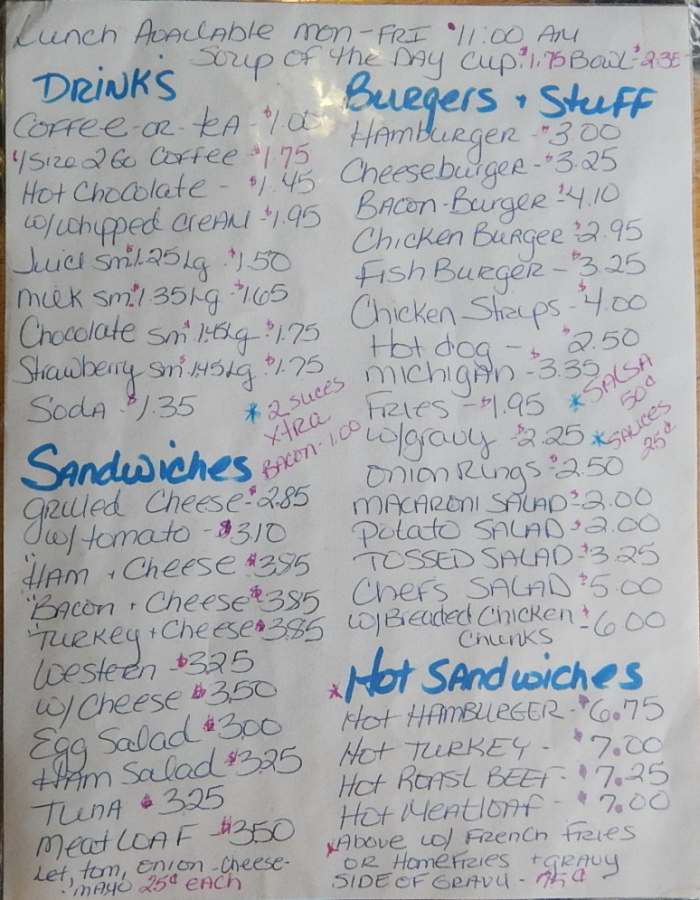 Lunch Available mon-FRI 11:00 AM
Soup of the Day Cup $1.75 Bowl $2.35
DRINKS
Coffee-or-tea $1.00
Size 2 Go Coffee $1.75
Hot Chocolate - $1.45
w/whipped cream $1.95
Juice sm $1.25 Lg $1.50
Milk sm $1.35 Lg $1.65
Chocolate sm $1.45 Lg $1.75
Strawberry sm $1.45 Lg $1.75
Soda $1.35
* 2 slices
xtra
Bacon-1.00
Sandwiches
Grilled Cheese $2.85
w/tomato - $3.10
"Ham + Cheese $3.85
"Bacon + Cheese $3.85
"Turkey + Cheese $3.85
Western - $3.25
w/Cheese $3.50
Egg Salad $3.00
Ham Salad $3.25
Tuna $3.25
Meat LOAF - $3.50
Let, tom, onion - cheese -
mayo 25¢ each
Burgers + Stuff
Hamburger - $3.00
Cheeseburger - $3.25
Bacon-Burger $4.10
Chicken Burger $2.95
Fish Burger - $3.25
Chicken Strips - $4.00
Hot dog - $2.50
michigan - $3.35
Fries - $1.95
* SALSA
50¢
w/gravy $2.25
* SAUCES
25¢
Onion Rings $2.50
MACARONI SALAD $2.00
Potato SALAD $2.00
TOSSED SALAD $3.25
Chef's SALAD $5.00
w/Breaded Chicken
Chunks - $6.00
* Hot Sandwiches
Hot HAMBURGER - $6.75
Hot TURKEY - $7.00
Hot ROAST BEEF - $7.25
Hot Meatloaf - $7.00
* Above w/ French Fries
OR Homefries + gravy
SIDE OF GRAVY - 75¢